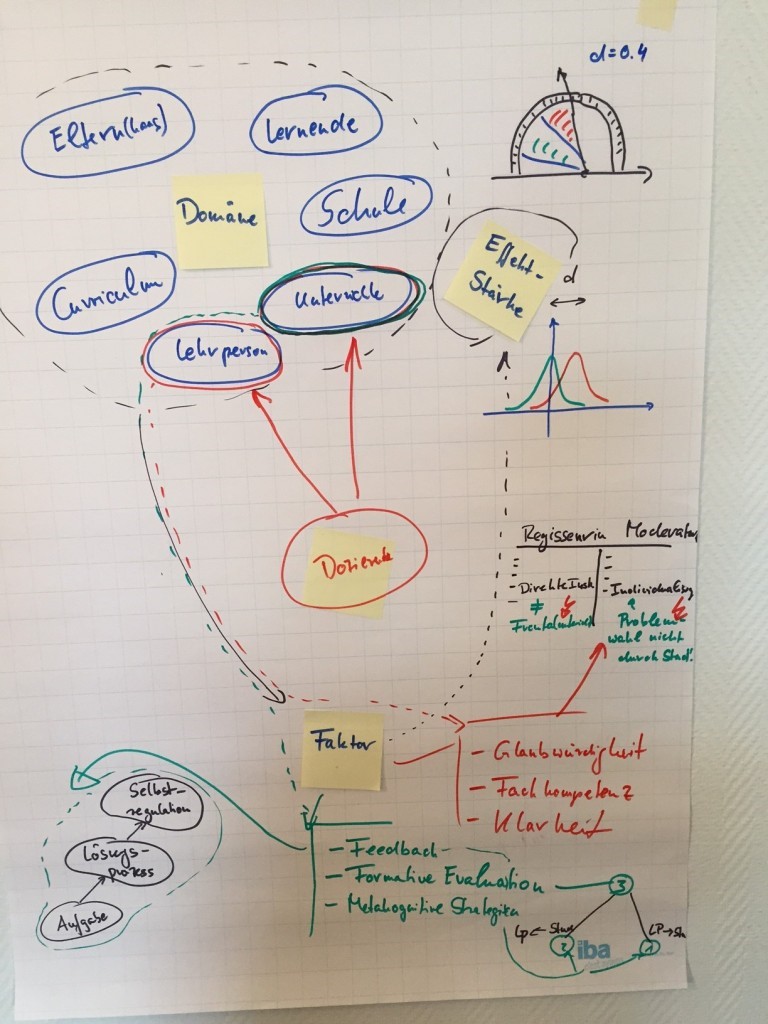 d=0.4
Eltern(haus)
Lernende
Domäne
Schule
Effekt-
Stärke
d
Curriculum
Lehrperson
Dozierende
Regisseurin
Moderator
- Direkte Inst
≠
Frontalunterricht
Problem
wahl nicht
durch Stud!
Faktor
- Glaubwürdigkeit
- Fachkompetenz
- Klarheit
Selbst-
regulation
Lösungs-
prozess
Aufgabe
- Feedback
- Formative Evaluation
- Metakognitive Strategien
3
LP
2
1
iba